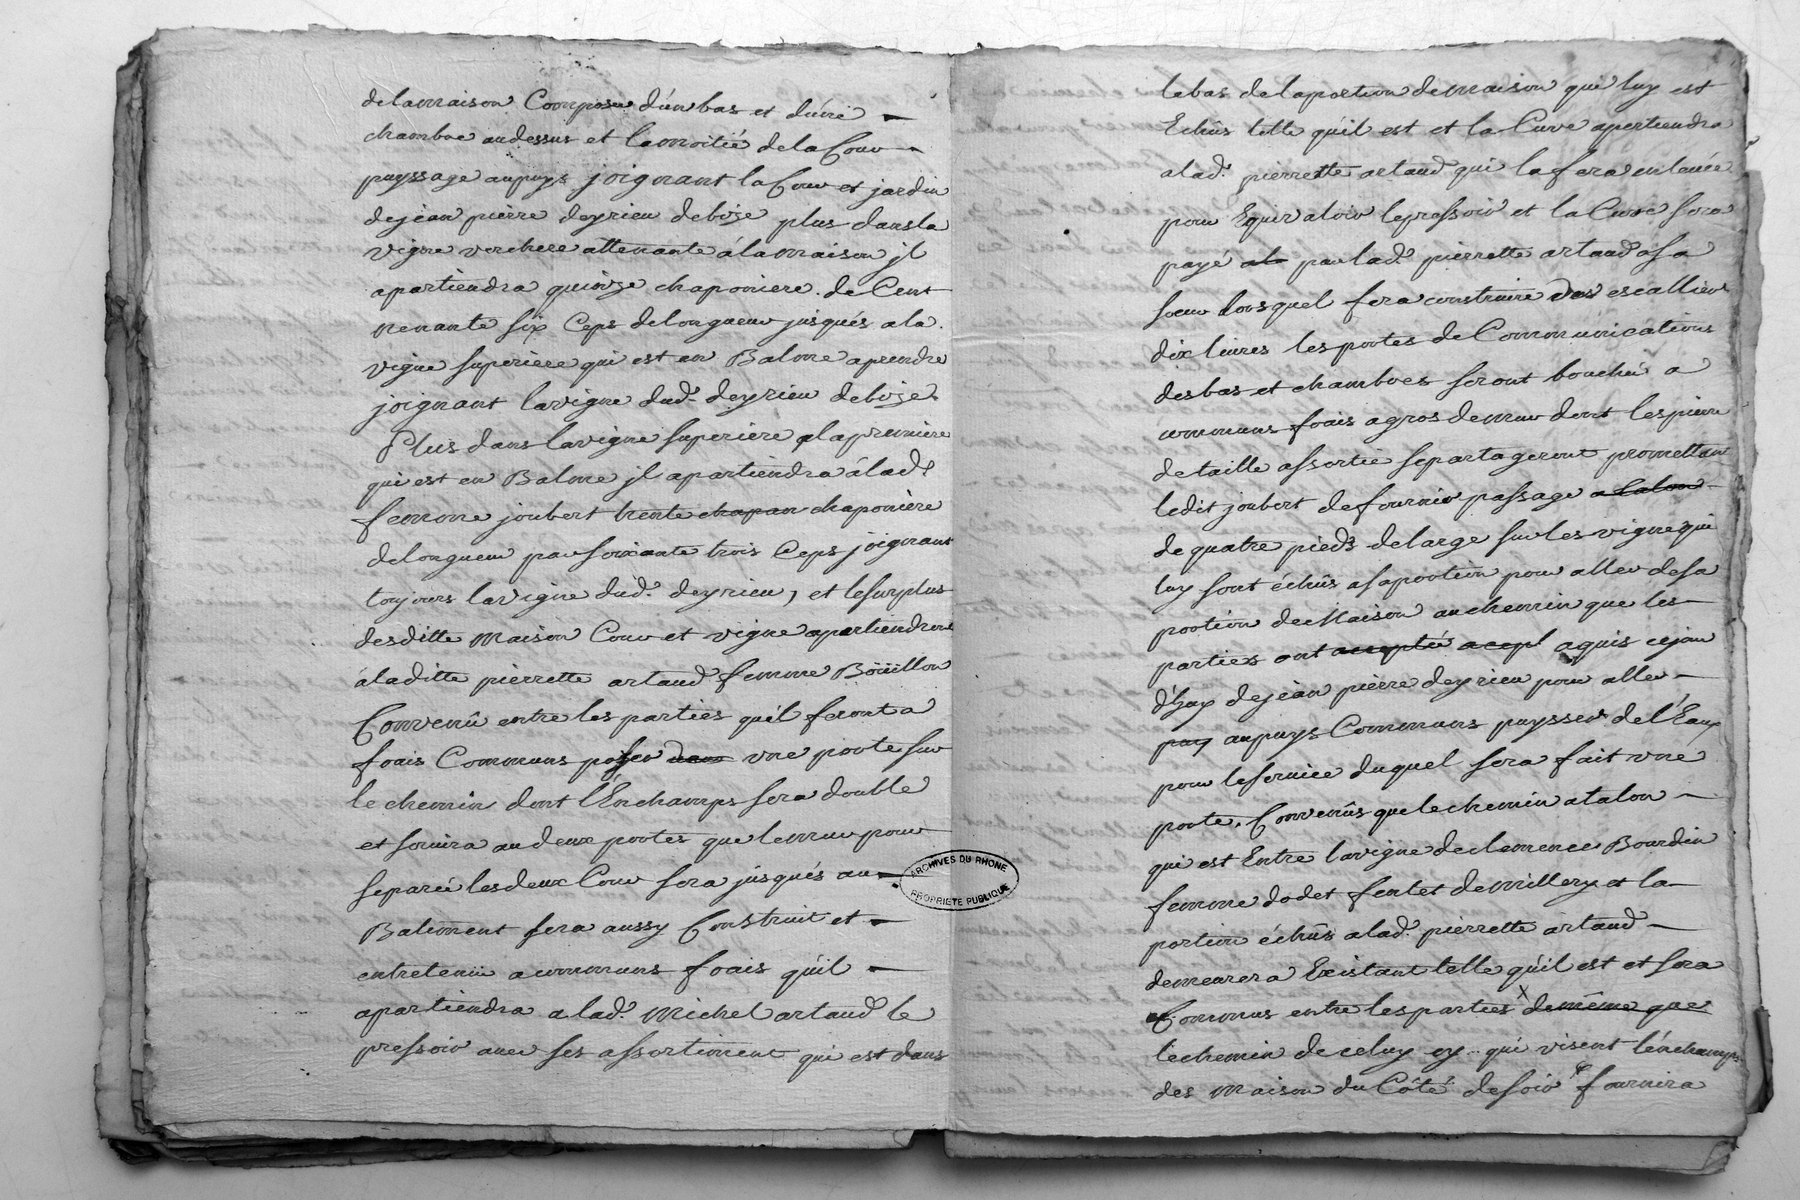 de la maison Composée d'un bas et d'une
chambre au dessus et la moitié de la Cour
puyssage au puys joignant la Cour et jardin
de jean pierre deyrieu de bize plus dans la
vigne verchere attenante à la maison jl
apartiendra quinze chaponiere de Cent
nenante six Ceps de longueur jusqués a la
vigne superiere qui est en Balme aprendre
joignant la vigne dud. deyrieu de bize
Plus dans la vigne superiere a la premiere
qui est en Balme jl apartiendra à lad.
femme joubert trente chapan chaponiere
de longueur par soixante trois Ceps joignant
toujours la vigne dud. deyrieu, et le surplus
desditte maison Cour et vigne apartiendront
à laditte pierrette artaud femme Boüillon
Convenû entre les parties qu'il feront a
frais Communs poser dans vne porte sur
le chemin dont l'Enchamps sera double
et servira au deux portes que le mur pour
separée les deux Cour sera jusqués au
Batiment sera aussy Construit et
entretenü a communs frais qu'il
apartiendra a lad. Michel artaud le
pressoir avec ses assortiment qui est dans
ARCHIVES DU RHONE
PROPRIETE PUBLIQUE
le bas de la portion de maison qui luy est
Echûs telle qu'il est et la Cuve apertiendra
a lad. pierrette artaud qui la fera enlevée
pour Equivaloir le pressoir et la Cuve sera
payé al par lad. pierrette artaud a sa
soeur lorsquel fera construire des escallier
dix livres les portes de Communications
des bas et chambres seront bouché a
communs frais a gros de mur dont les pierre
de taille assortie se partageront promettant
ledit joubert de fournir passage a talon
de quatre pieds de large sur les vigne qui
luy sont échûs a sa portion pour aller de sa
portion de Maison au chemin que les
parties ont accepté acept aquis cejour
d'huy de jean pierre deyrieu pour aller
puy au puys Communs puysser de l'Eaux
pour le service duquel sera fait vne
porte. Convenûs que le chemin a talon
qui est Entre la vigne de clemence Bourdin
femme dodet de millery et la
portion échûs a lad. pierrette artaud
demeurera Existant telle qu'il est et sera
Communs entre les parties X de même que
le chemin de celuy cy qui visent l'enchamps
des maison du Côté de soir fournira